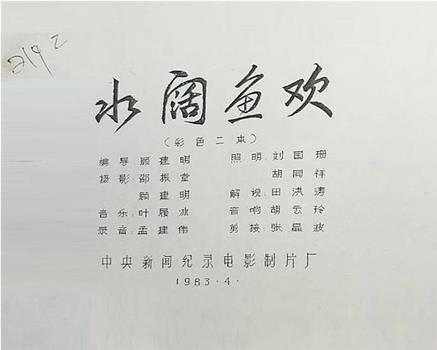 219 2
水阔鱼欢
(彩色二本)
编导 顾建明 照明 刘国珊
摄影 邵振堂 胡同祥
顾建明 解说 田洪涛
音乐 叶履冰 音响 胡云玲
录音 孟建伟 剪接 张晶波
中央新闻纪录电影制片厂
1983.4.